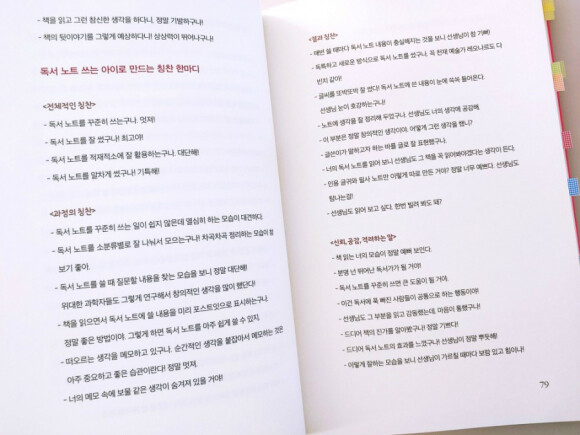 - 책을 읽고 그런 참신한 생각을 하다니. 정말 기발하구나!
- 책의 뒷이야기를 그렇게 예상하다니! 상상력이 뛰어나구나!
독서 노트 쓰는 아이로 만드는 칭찬 한마디
<전체적인 칭찬>
- 독서 노트를 꾸준히 쓰는구나. 멋져!
- 독서 노트를 잘 썼구나! 최고야!
- 독서 노트를 적재적소에 잘 활용하는구나. 대단해!
- 독서 노트를 알차게 썼구나! 기특해!
<과정의 칭찬>
- 독서 노트를 꾸준히 쓰는 일이 쉽지 않은데 열심히 하는 모습이 대견하다.
- 독서 노트를 소분류별로 잘 나눠서 모으는구나! 차곡차곡 정리하는 모습이 참
보기 좋아.
- 독서 노트를 쓸 때 질문할 내용을 찾는 모습을 보니 정말 대단해!
위대한 과학자들도 그렇게 연구해서 창의적인 생각을 많이 했단다!
- 책을 읽으면서 독서 노트에 쓸 내용을 미리 포스트잇으로 표시하는구나.
정말 좋은 방법이야. 그렇게 하면 독서 노트를 아주 쉽게 쓸 수 있지.
- 떠오르는 생각을 메모하고 있구나. 순간적인 생각을 붙잡아서 메모하는 것은
아주 중요하고 좋은 습관이란다! 정말 멋져.
- 너의 메모 속에 보물 같은 생각이 숨겨져 있을 거야!
<결과 칭찬>
- 매번 쓸 때마다 독서 노트 내용이 충실해지는 것을 보니 선생님이 참 기뻐!
- 독특하고 새로운 방식으로 독서 노트를 썼구나. 꼭 천재 예술가 레오나르도 다
빈치 같아!
- 글씨를 또박또박 잘 썼다! 독서 노트에 쓴 내용이 눈에 쏙쏙 들어온다.
선생님 눈이 호강하는구나!
- 노트에 생각을 잘 정리해 두었구나. 선생님도 너의 생각에 공감해.
- 이 부분은 정말 창의적인 생각이야. 어떻게 그런 생각을 했니?
- 글쓴이가 말하고자 하는 바를 글로 잘 표현했구나.
- 너의 독서 노트를 읽어 보니 선생님도 그 책을 꼭 읽어봐야겠다는 생각이 든다.
- 인용 글귀와 필사 노트만 이렇게 따로 만든 거야? 정말 너무 예쁘다. 선생님도
탐나는걸!
- 선생님도 읽어 보고 싶다. 한번 빌려 봐도 돼?
<신뢰, 공감, 격려하는 말>
- 책 읽는 너의 모습이 정말 예뻐 보인다.
- 분명 넌 뛰어난 독서가가 될 거야.
- 독서 노트를 꾸준히 쓰면 큰 도움이 될 거야.
- 이건 독서에 푹 빠진 사람들이 공통으로 하는 행동이야!
- 선생님도 그 부분을 읽고 감동했는데, 마음이 통했구나!
- 드디어 책의 진가를 알아봤구나! 정말 기쁘다!
- 드디어 독서 노트의 효과를 느꼈구나! 선생님이 정말 뿌듯해!
- 이렇게 잘하는 모습을 보니 선생님이 가르칠 때마다 보람 있고 힘이나!
79